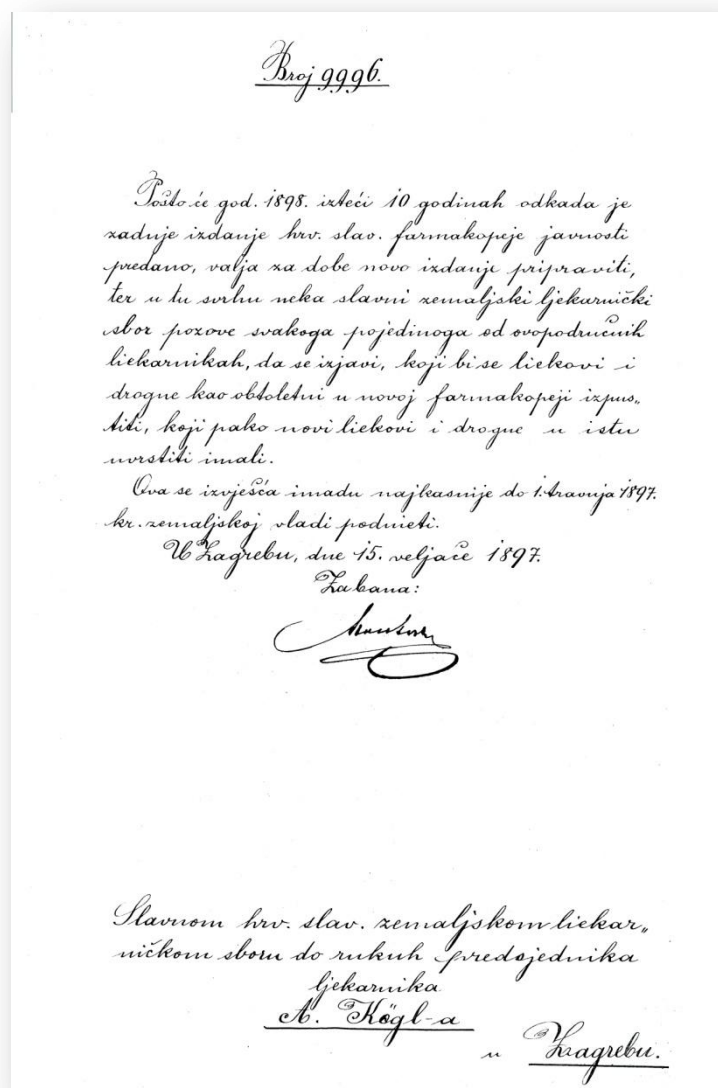 Broj 9996.
Pošto će god. 1898. izteći 10 godinah odkada je
zadnje izdanje hrv. slav. farmakopeje javnosti
predano, valja za dobe novo izdanje pripraviti,
ter u tu svrhu neka slavni zemaljski ljekarnički
sbor pozove svakoga pojedinoga od ovopodručnih
liekarnikah, da se izjavi, koji bi se liekovi i
drogue kao obtoletni u novoj farmakopeji izpus„
titi, koji pako novi liekovi i drogue u istu
uvrstiti imali.
Ova se izvješća imadu najkasnije do 1. travnja 1897.
kr. zemaljskoj vladi podnieti.
U Zagrebu, dne 15. veljače 1897.
Za bana:
Slavnom hrv. slav. zemaljskom liekar„
ničkom sboru do rukuh predsjednika
ljekarnika
A. Kögl-a
u Zagrebu.